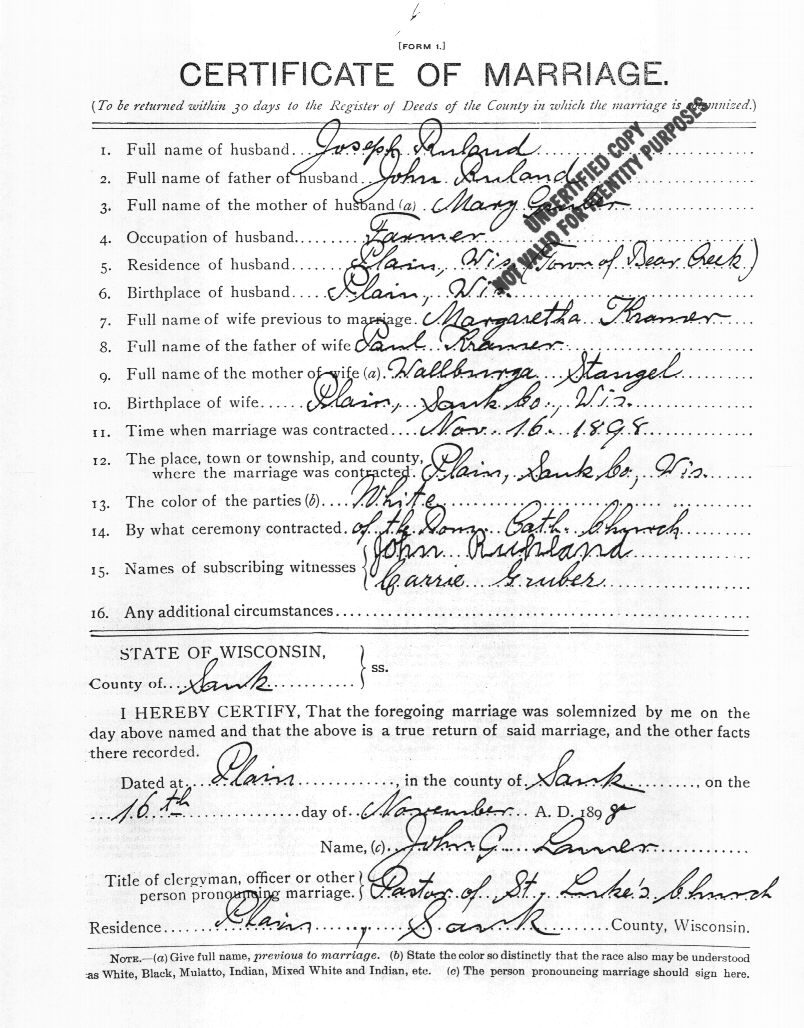 [FORM 1.]
CERTIFICATE OF MARRIAGE.
(To be returned within 30 days to the Register of Deeds of the County in which the marriage is solemnized.)
UNCERTIFIED COPY
NOT VALID FOR IDENTITY PURPOSES
1. Full name of husband Joseph Ruland
2. Full name of father of husband John Ruland
3. Full name of the mother of husband (a) Mary Gruber
4. Occupation of husband Farmer
5. Residence of husband Plain, Wis. (Town of Bear Creek)
6. Birthplace of husband Plain, Wis.
7. Full name of wife previous to marriage. Margaretha Kramer
8. Full name of the father of wife Paul Kramer
9. Full name of the mother of wife (a). Wallburga Stangel
10. Birthplace of wife Plain, Sauk Co., Wis.
11. Time when marriage was contracted Nov. 16. 1898
12. The place, town or township, and county,
where the marriage was contracted. Plain, Sauk Co, Wis.
13. The color of the parties (b) White
14. By what ceremony contracted. of the Rom. Cath. Church
15. Names of subscribing witnesses John Ruhland
Carrie Gruber
16. Any additional circumstances
STATE OF WISCONSIN,
County of Sauk ss.
I HEREBY CERTIFY, That the foregoing marriage was solemnized by me on the
day above named and that the above is a true return of said marriage, and the other facts
there recorded.
Dated at Plain, in the county of Sauk, on the
16th day of November A. D. 1898
Name, (c). John G.
Title of clergyman, officer or other
person pronouncing marriage. Pastor of St. Luke's Church
Residence Plain, Sauk County, Wisconsin.
NOTE.—(a) Give full name, previous to marriage. (b) State the color so distinctly that the race also may be understood
as White, Black, Mulatto, Indian, Mixed White and Indian, etc. (c) The person pronouncing marriage should sign here.